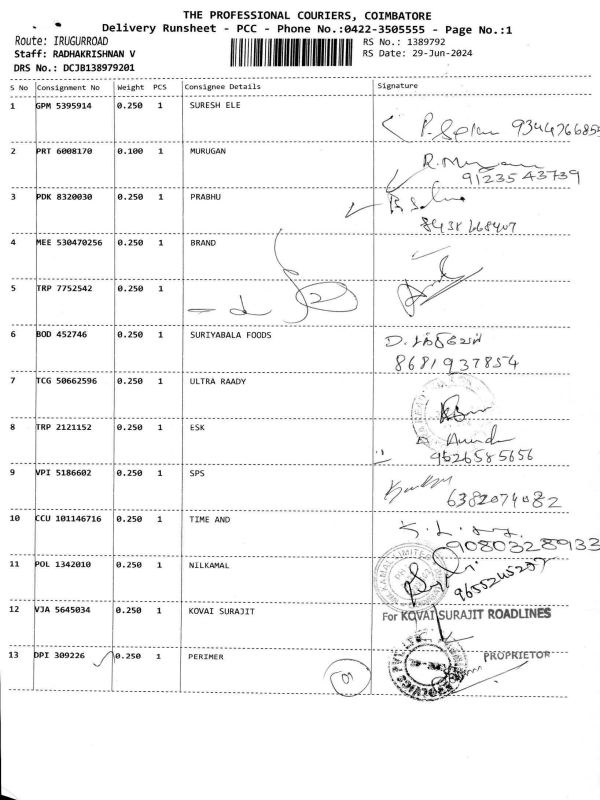 THE PROFESSIONAL COURIERS, COIMBATORE
Delivery Runsheet - PCC - Phone No.:0422-3505555 - Page No.:1
Route: IRUGURROAD
RS No.: 1389792
Staff: RADHAKRISHNAN V
RS Date: 29-Jun-2024
DRS No.: DCJB138979201
S No Consignment No Weight PCS Consignee Details Signature
1 GPM 5395914 0.250 1 SURESH ELE
2 PRT 6008170 0.100 1 MURUGAN
9123543739
3 PDK 8320030 0.250 1 PRABHU
4 MEE 530470256 0.250 1 BRAND
5 TRP 7752542 0.250 1
6 BOD 452746 0.250 1 SURIYABALA FOODS
8681937854
7 TCG 50662596 0.250 1 ULTRA RAADY
8 TRP 2121152 0.250 1 ESK
9626585656
9 VPI 5186602 0.250 1 SPS
6382074082
10 CCU 101146716 0.250 1 TIME AND
9080328933
11 POL 1342010 0.250 1 NILKAMAL
9655245207
12 VJA 5645034 0.250 1 KOVAI SURAJIT
For KOVAI SURAJIT ROADLINES
13 DPI 309226 0.250 1 PERIMER
PROPRIETOR